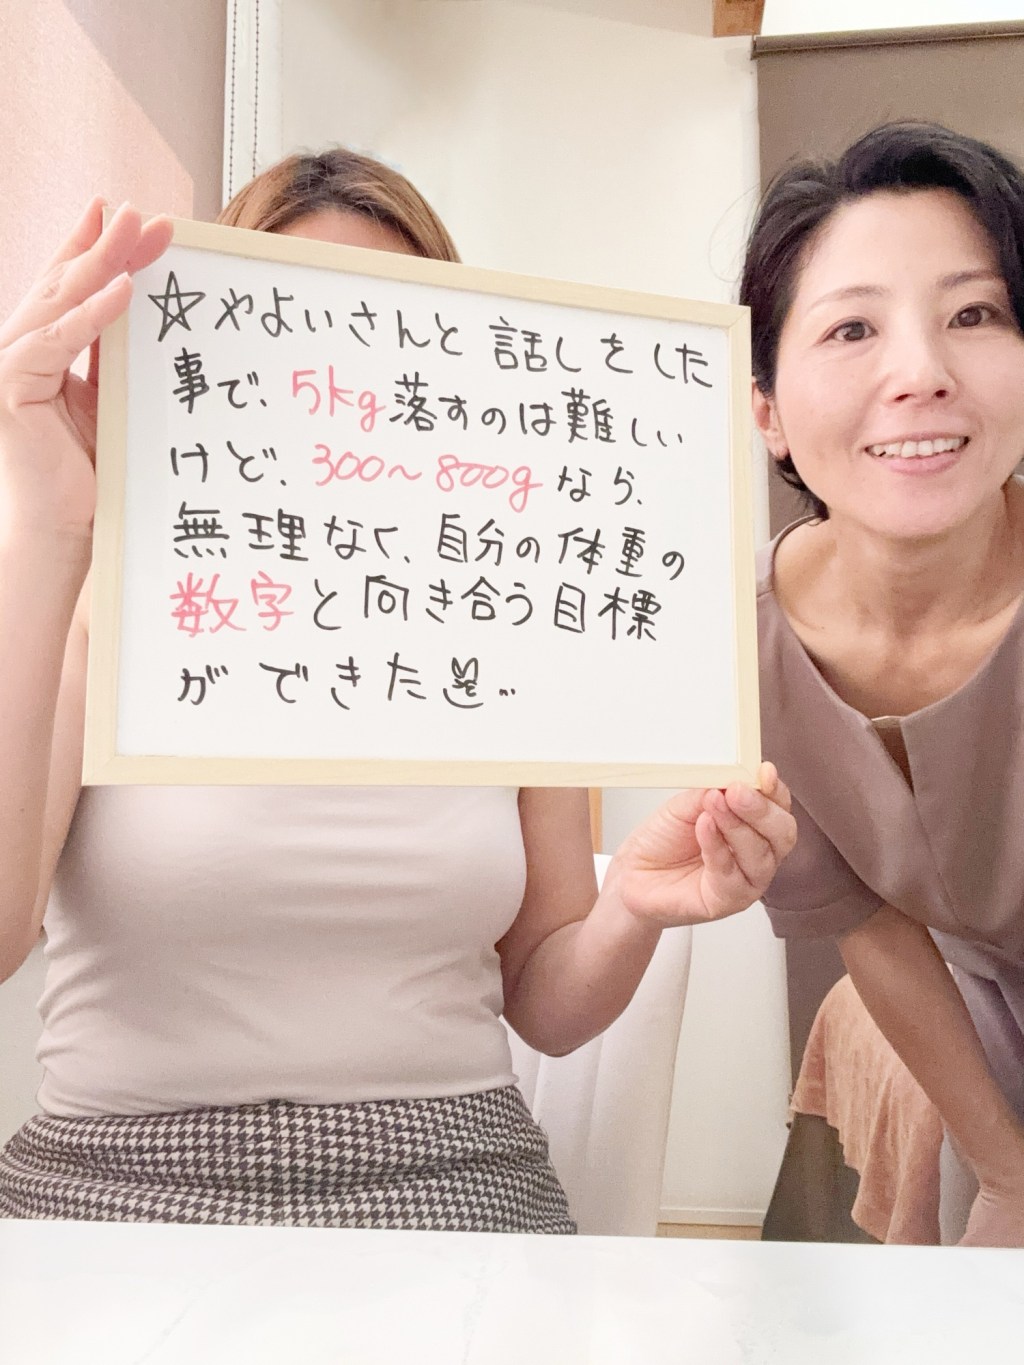 ☆やよいさんと 話しをした
事で、5kg落すのは難しい
けど、300〜800gなら、
無理なく、自分の体重の
数字と向き合う目標
ができた✌…